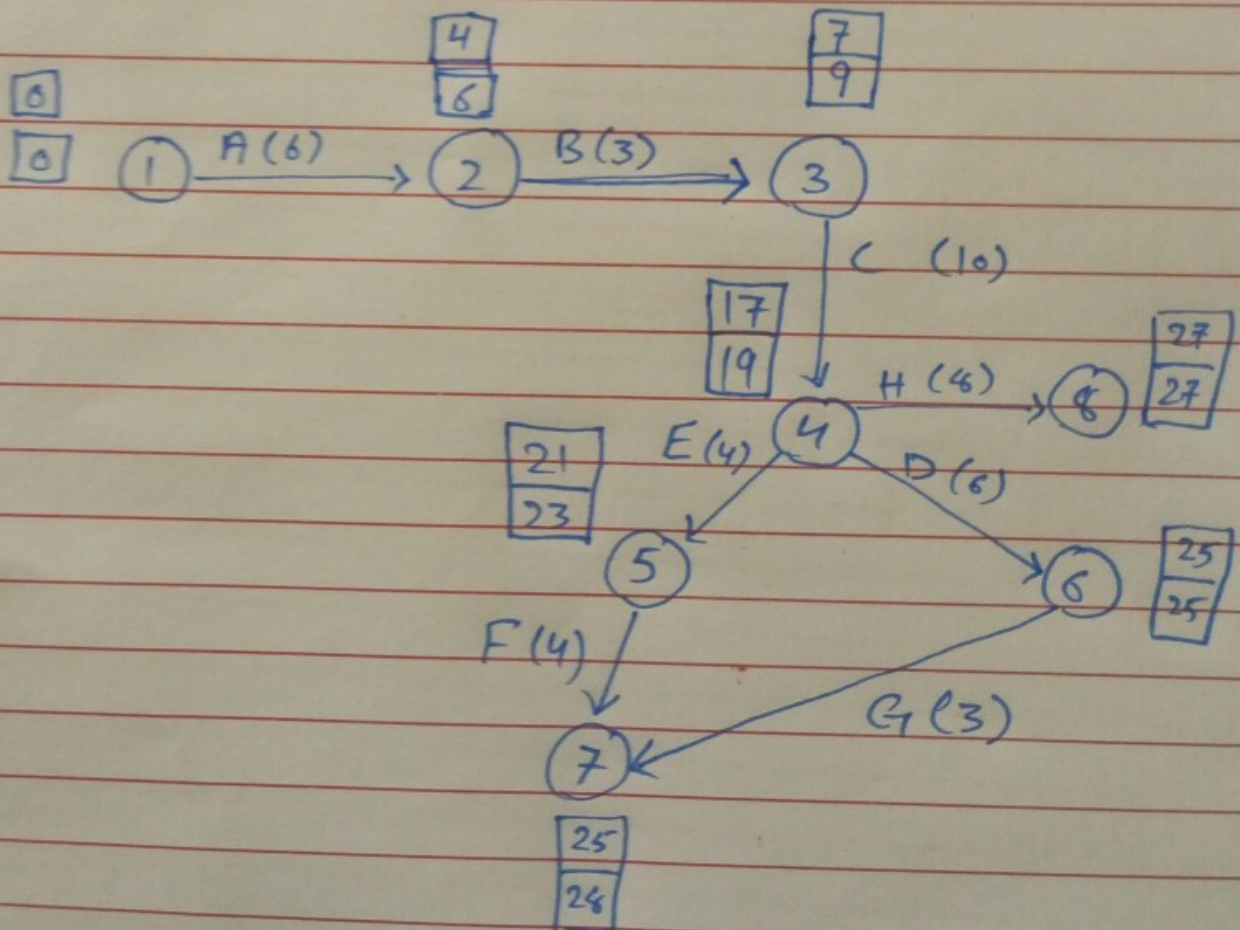 4
6
7
9
0
0
1
A (6)
2
B (3)
3
C (10)
17
19
H (8)
8
27
27
4
E (4)
D (6)
21
23
5
6
25
25
F (4)
G (3)
7
25
28